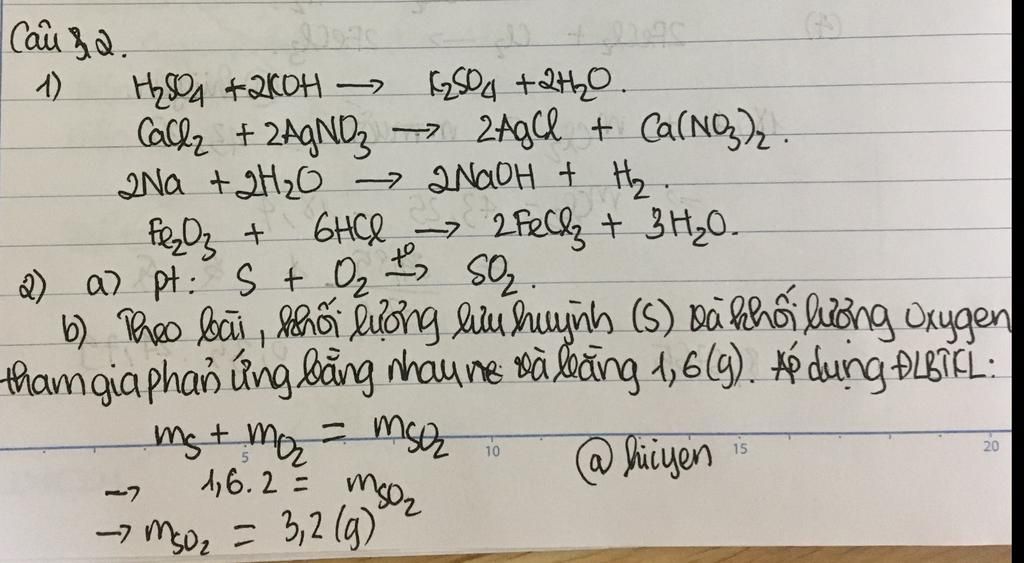 Câu 3,2.
1) H₂SO₄ + 2KOH → K₂SO₄ + 2H₂O.
CaCl₂ + 2AgNO₃ → 2AgCl + Ca(NO₃)₂.
2Na + 2H₂O → 2NaOH + H₂.
Fe₂O₃ + 6HCl → 2FeCl₃ + 3H₂O.
2) a) pt: S + O₂ →(t⁰) SO₂.
b) Theo bài, khối lượng lưu huỳnh (S) và khối lượng oxygen
tham gia phản ứng bằng nhau và bằng 1,6(g). Áp dụng ĐLBTKL:
mS + mO₂ = mSO₂
→ 1,6.2 = mSO₂
→ mSO₂ = 3,2(g)
5 10 15 20